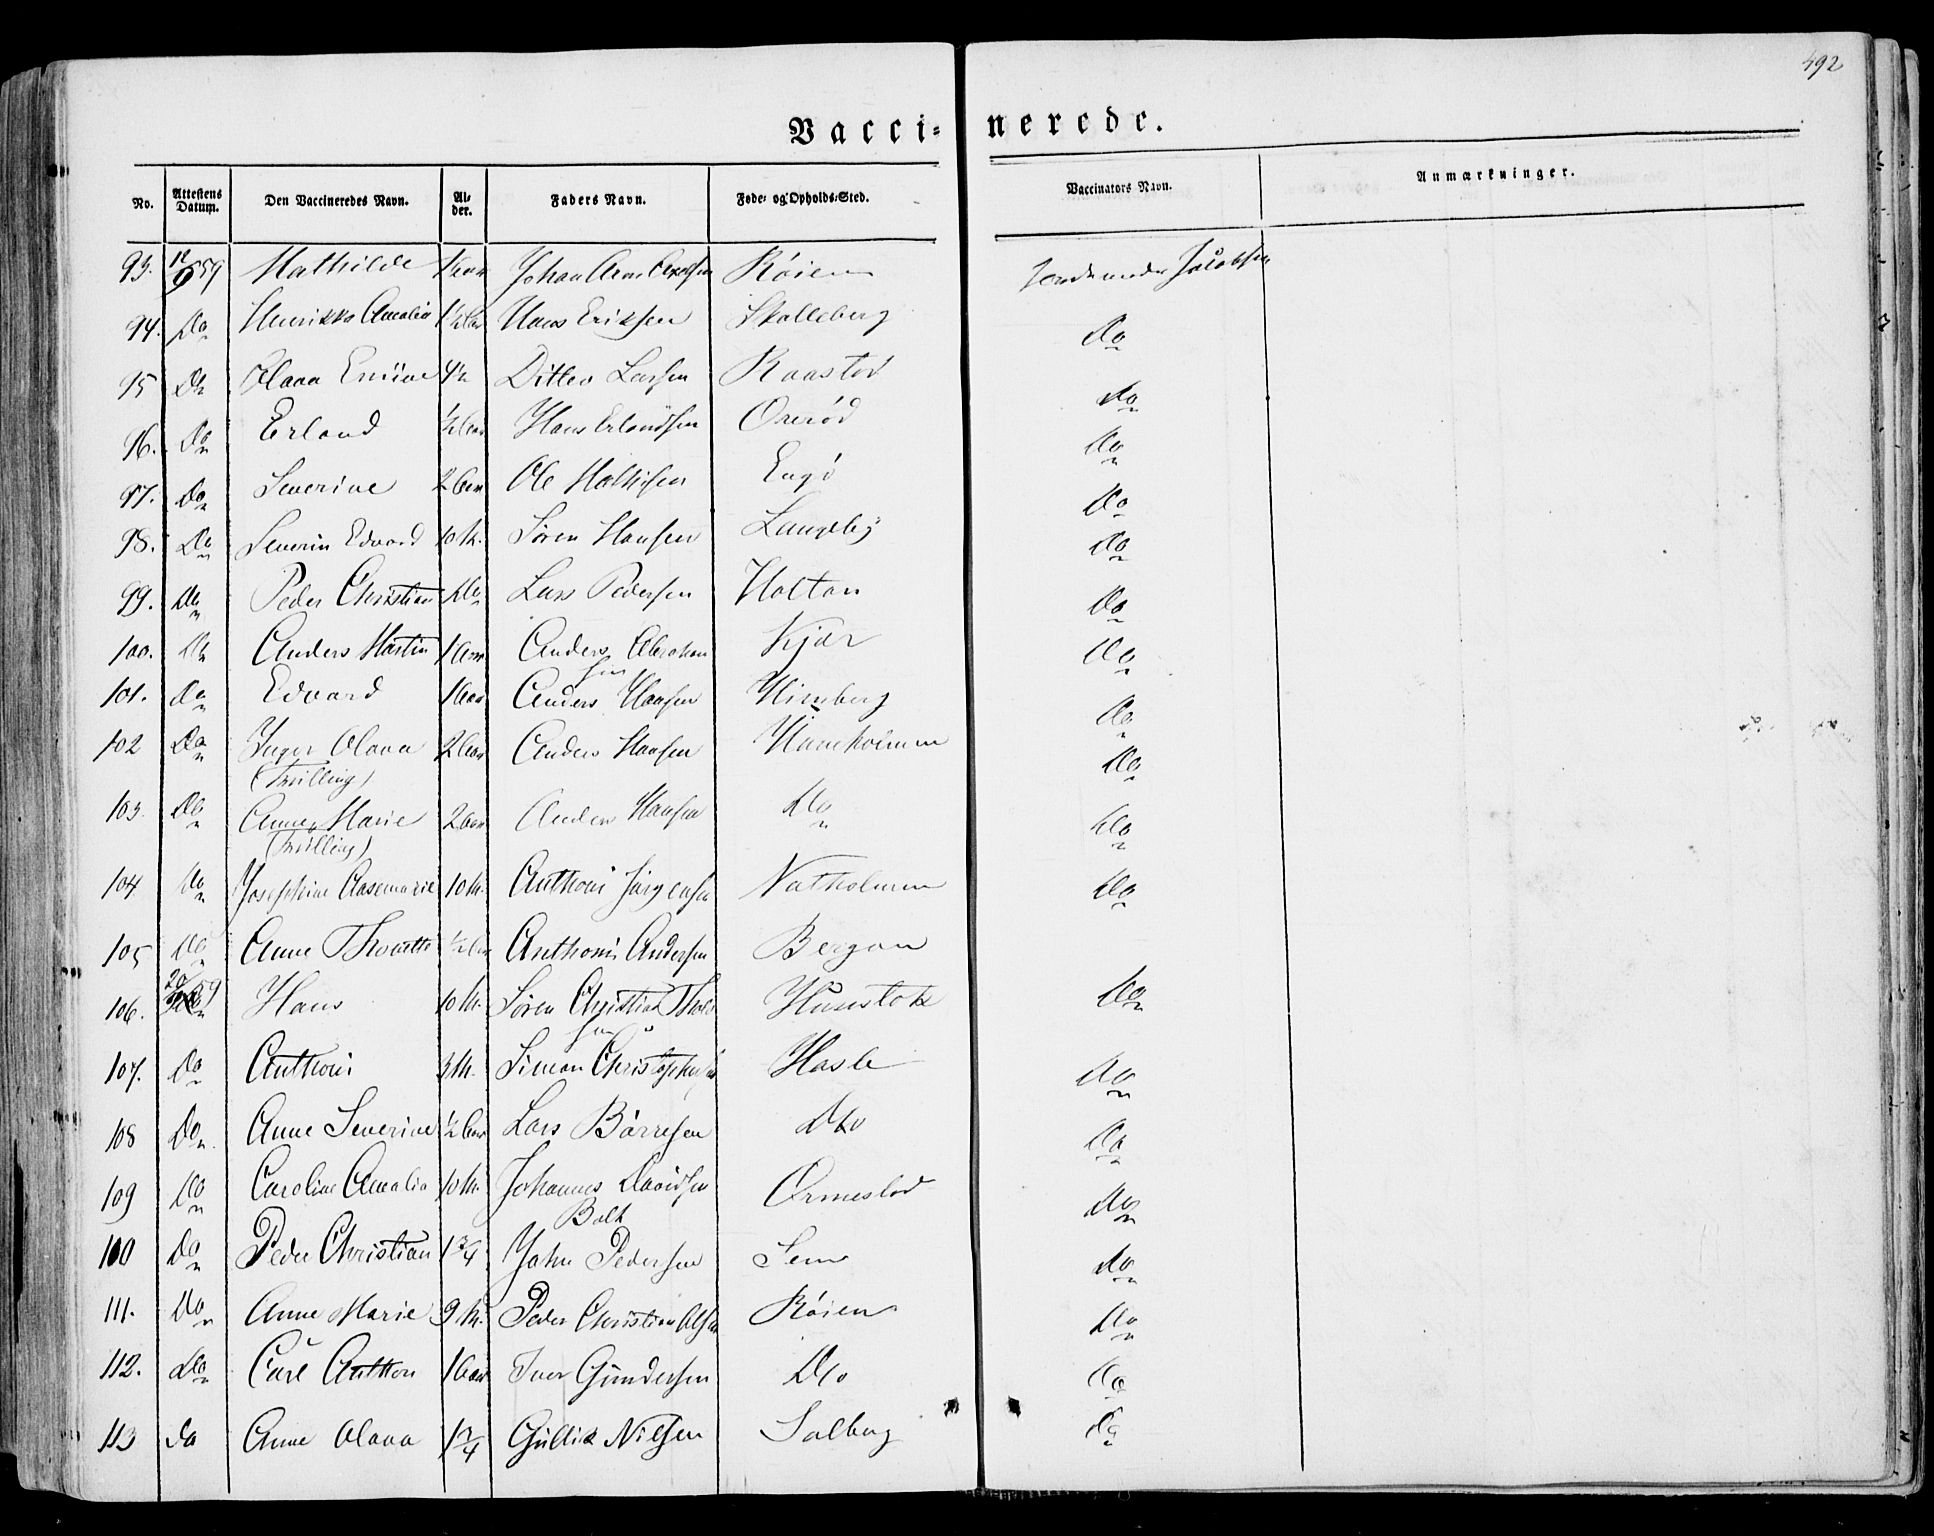 492
Vacci- nerede.
No. Attestens Datum. Den Vaccineredes Navn. Al- der. Faders Navn. Føde- og Opholds-Sted. Vaccinators Navn. Anmærkninger.
93. 12/9 59 Mathilde Johan Røien Jordemoder Jacobsen
94. Do Henrikka Amalia 1½ Hans Eriksen Skalleberg Do
95 Do Olava 4½ Ditlev Larsen Raastad Do
96. Do Erland ½ Aar Hans Erlandsen Do
97. Do Severine 2 Aar Ole Mathisen Engø Do
98. Do Severin Edvard 10 M. Søren Hansen Do
99. Do Peder Christian Do Lars Pedersen Holtan Do
100. Do Anders Martin 1 Aar Anders Abraham Kjær Do
sen
101. Do Edvard 1 Aar Anders Hansen Himberg Do
102 Do Inger Olava 2 Aar Anders Hansen Do
(Tvilling)
103 Do Anne Marie 2 Aar Anders Hansen Do Do
(Tvilling)
104 Do Josephine Aasemarie 10 M. Anthoni Jørgensen Natholmen Do
105 Do Anne ½ Aar Anthoni Andersen Bergan
106. 20/9 59 Hans 10 M. Søren Christian Hunstok Do
sen
107. Do Anthoni M. Simon Christophersen Hasle Do
108 Do Anne Severine ½ Aar Lars Børresen Do Do
109 Do Caroline Amalia 10 M. Johannes Davidsen Ormestad Do
Bolt
100 Do Peder Christian 1¾ John Pedersen Sem Do
111. Do Anne Marie 9 M. Peder Christian Olsen Røien Do
112. Do Carl Anthon 1 Aar Iver Gundersen Do Do
113 Do Anne Olava Gullik Nilsen Solberg Do